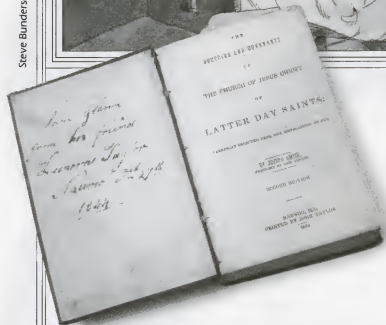 Steve Bunders
from his friend
Nauvoo July
1844
THE
DOCTRINE AND COVENANTS
OF
THE CHURCH OF JESUS CHRIST
OF
LATTER DAY SAINTS;
CAREFULLY SELECTED FROM THE REVELATIONS OF GOD
BY JOSEPH SMITH
PRESIDENT OF SAID CHURCH
SECOND EDITION
NAUVOO, ILL.
PRINTED BY JOHN TAYLOR
1844